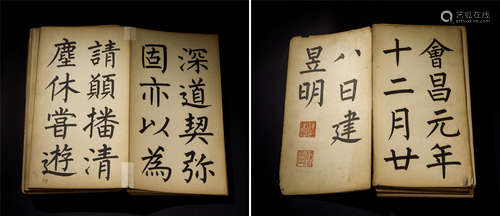 深道契弥
固亦以為
請顛播清
塵休甞遊
會昌元年
十二月廿
八日建
昱明
艺狐在线